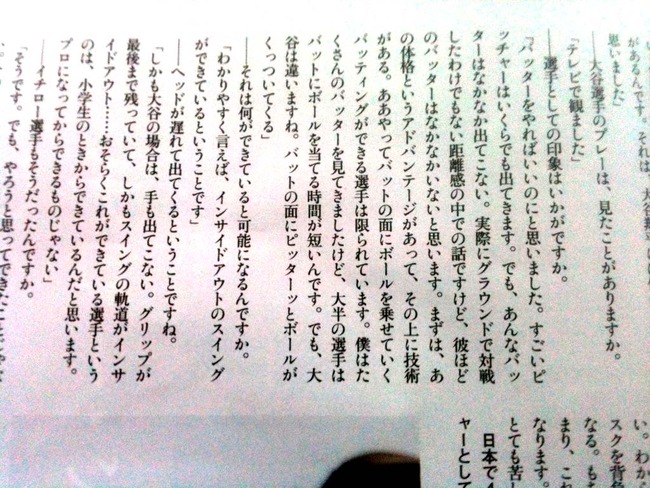 があるんです。それは、大谷翔
思いました」
――大谷選手のプレーは、見たことがありますか。
「テレビで観ました」
――選手としての印象はいかがですか。
「バッターをやればいいのにと思いました。すごいピ
ッチャーはいくらでも出てきます。でも、あんなバッ
ターはなかなか出てこない。実際にグラウンドで対戦
したわけでもない距離感の中での話ですけど、彼ほど
のバッターはなかなかいないと思います。まずは、あ
の体格というアドバンテージがあって、その上に技術
がある。ああやってバットの面にボールを乗せていく
バッティングができる選手は限られています。僕はた
くさんのバッターを見てきましたけど、大半の選手は
バットにボールを当てる時間が短いんです。でも、大
谷は違いますね。バットの面にピッターッとボールが
くっついてくる」
――それは何ができていると可能になるんですか。
「わかりやすく言えば、インサイドアウトのスイング
ができているということです」
――ヘッドが遅れて出てくるということですね。
「しかも大谷の場合は、手も出てこない。グリップが
最後まで残っていて、しかもスイングの軌道がインサ
イドアウト……おそらくこれができている選手という
のは、小学生のときからできているんだと思います。
プロになってからできるものじゃない」
――イチロー選手もそうだったんですか。
「そうです。でも、やろうと思ってできたことじゃな
い。わから
スクを背負
なる。もち
まり、これ
なります。
とても苦し
日本でイ
ャーとして